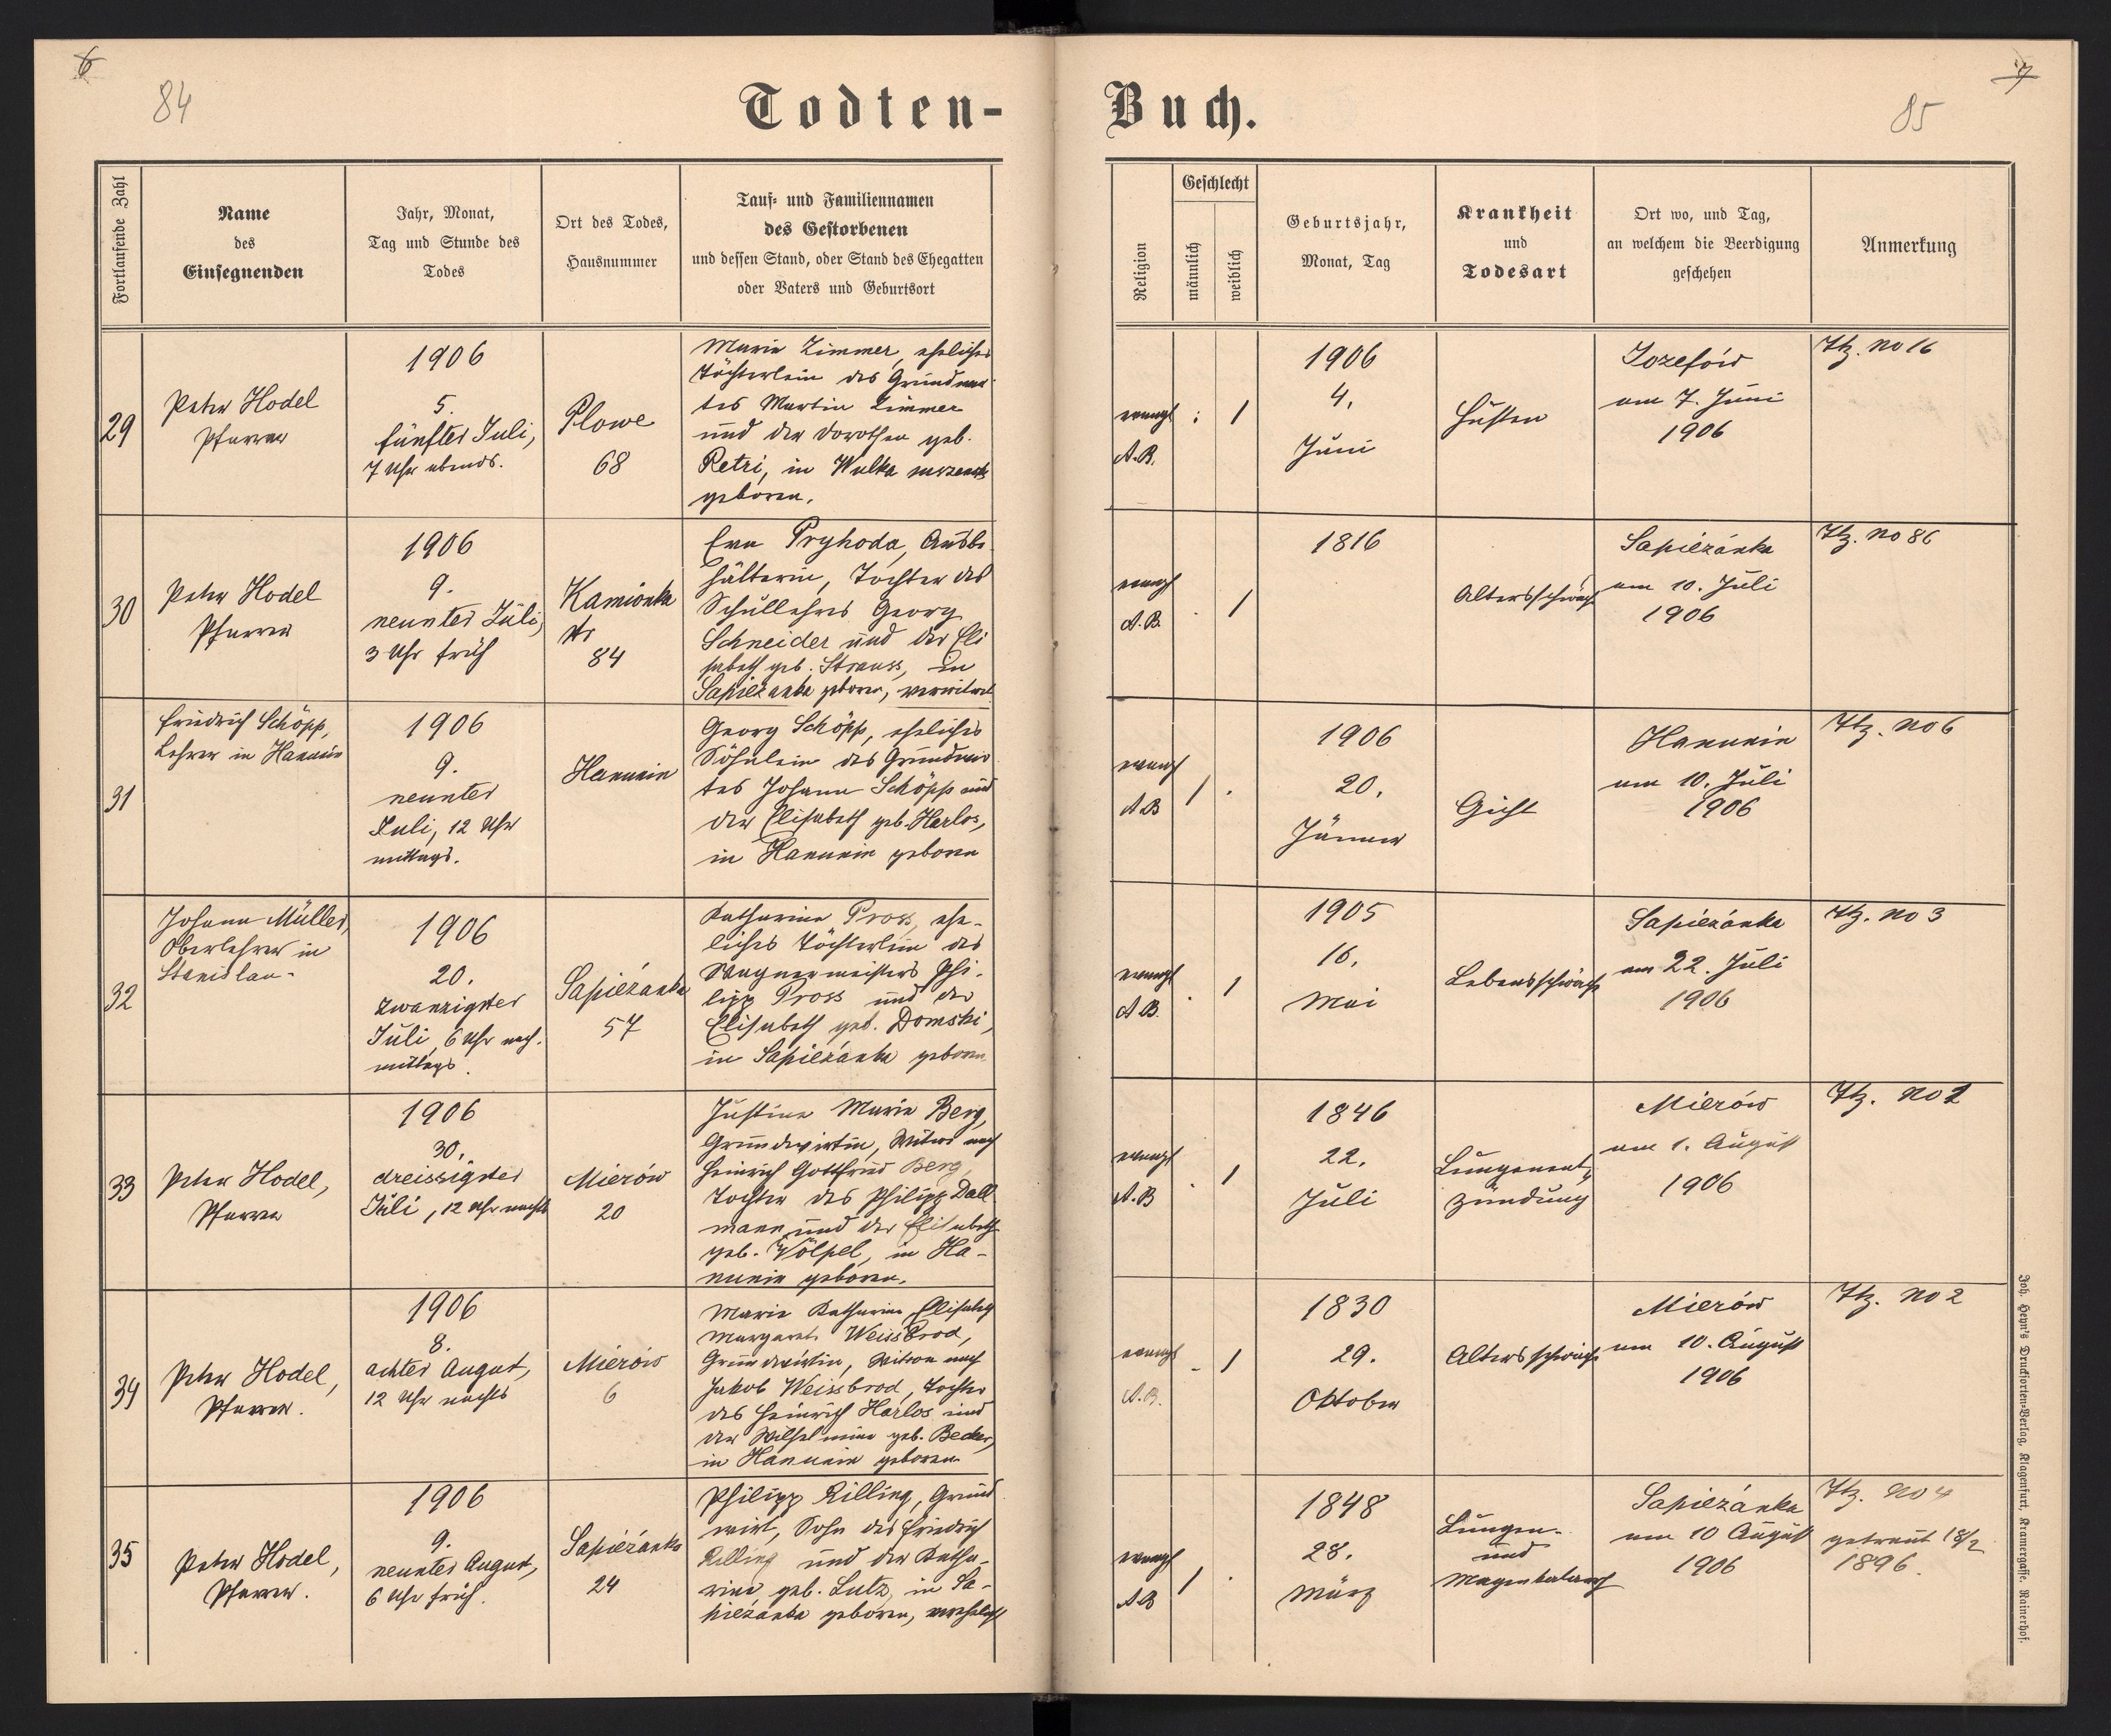 6
84
Todten-
Fortlaufende Zahl
Name
des
Einsegnenden
Jahr, Monat,
Tag und Stunde des
Todes
Ort des Todes,
Hausnummer
Tauf- und Familiennamen
des Gestorbenen
und dessen Stand, oder Stand des Ehegatten
oder Vaters und Geburtsort
29
Peter Hodel
Pfarrer
1906
5.
fünfter Juli,
7 Uhr abends.
Plowe
68
Marie Zimmer, eheliches
Töchterlein des Grundwir-
tes Martin Zimmer
und der Dorothea geb.
Petri, in Wulka
geboren.
30
Peter Hodel
Pfarrer
1906
9.
neunter Juli,
3 Uhr früh
Kamionka
Nr
84
Eva Pryhoda, Ausbe-
hälterin, Tochter des
Schullehrers Georg
Schneider und der Eli
sabeth geb. Strauss, in
Sapiezanka geboren, verwitwet
31
Friedrich Schöpp,
Lehrer in Hanunin
1906
9.
neunter
Juli, 12 Uhr
mittags.
Hanunin
Georg Schöpp, eheliches
Söhnlein des Grundwir
tes Johann Schöpp und
der Elisabeth geb. Harlos,
in Hanunin geboren
32
Johann Müller,
Oberlehrer in
Stanislau-
1906
20.
zwanzigster
Juli, 6 Uhr nach-
mittags.
Sapiezanka
57
Katharina Pross, ehe-
liches Töchterlein des
Wagnermeisters Phi-
lipp Pross und der
Elisabeth geb. Domski,
in Sapiezanka geboren
33
Peter Hodel,
Pfarrer
1906
30.
dreissigster
Juli, 12 Uhr nachts
Mierów
20
Justine Marie Berg,
Grundwirtin, Witwe nach
Heinrich Gottfried Berg,
Tochter des Philipp Dall
mann und der Elisabeth
geb. Völpel, in Ha-
nunin geboren.
34
Peter Hodel,
Pfarrer.
1906
8.
achter August,
12 Uhr nachts
Mierów
6
Marie Katharina Elisabeth
Margareta Weissbrod,
Grundwirtin, Witwe nach
Jakob Weissbrod, Tochter
des Heinrich Harlos und
der Wilhelmine geb. Becker,
in Hanunin geboren
35
Peter Hodel,
Pfarrer.
1906
9.
neunter August,
6 Uhr früh.
Sapiezanka
24
Philipp Rilling, Grund
wirt, Sohn des Friedrich
Rilling und der Katha-
rina, geb. Lutz, in Sa-
piezanka geboren, verehelicht
7
85
Buch.
Religion
Geschlecht
männlich
weiblich
Geburtsjahr,
Monat, Tag
Krankheit
und
Todesart
Ort wo, und Tag,
an welchem die Beerdigung
geschehen
Anmerkung
evangl
A.B.
1
1906
4.
Juni
Husten
Jozefów
am 7. Juni
1906
Ztz. No 16
evangl
A.B.
1
1816
Altersschwäche
Sapiezánka
am 10. Juli
1906
Ztz. No 86
evangl
A.B
1
1906
20.
Jänner
Gicht
Hanunin
am 10. Juli
1906
Ztz. No 6
evangl
A.B.
1
1905
16.
Mai
Lebensschwäche
Sapiezánka
am 22. Juli
1906
Ztz. No 3
evangl
A.B
1
1846
22.
Juli
Lungenent-
zündung
Mierów
am 1. August
1906
Ztz. No 1
evangl
A.B.
1
1830
29.
Oktober
Altersschwäche
Mierów
am 10. August
1906
Ztz. No 2
evangl
A.B
1
1848
28.
März
Lungen-
und
Magenkatarrh
Sapiezánka
am 10 August
1906
Ztz. No 4
getraut 18/2
1896.
Joh. Heyn's Drucksorten-Verlag, Klagenfurt, Kramergasse, Rainerhof.